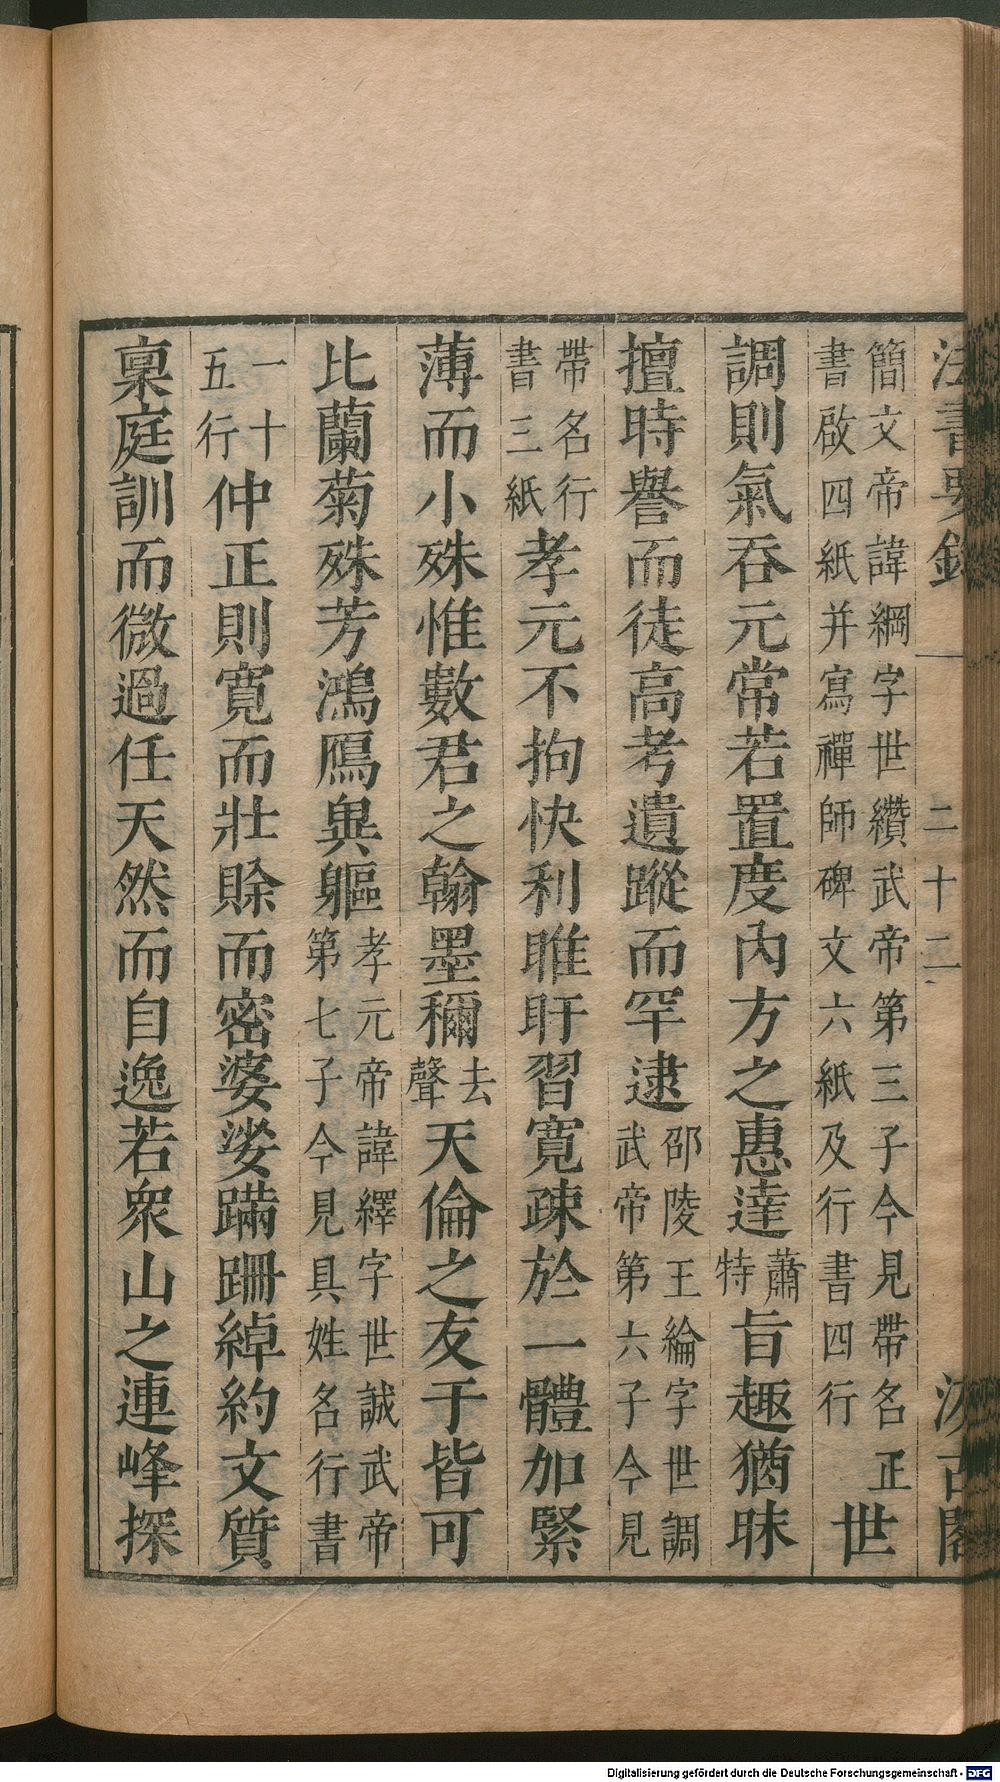 法書要錄 二十二 汲古閣
簡文帝諱綱字世纘武帝第三子今見帶名正
書啟四紙并寫禪師碑文六紙及行書四行
世
調則氣吞元常若置度內方之惠達
蕭
特
旨趣猶昧
擅時譽而徒高考遺蹤而罕逮
邵陵王綸字世調
武帝第六子今見
帶名行
書三紙
孝元不拘快利睢盱習寬疎於一體加緊
薄而小殊惟數君之翰墨穪
去
聲
天倫之友于皆可
比蘭菊殊芳鴻鴈異軀
孝元帝諱繹字世誠武帝
第七子今見具姓名行書
一十
五行
仲正則寬而壯賒而密婆娑蹣跚綽約文質
稟庭訓而微過任天然而自逸若眾山之連峰探
Digitalisierung gefördert durch die Deutsche Forschungsgemeinschaft - DFG